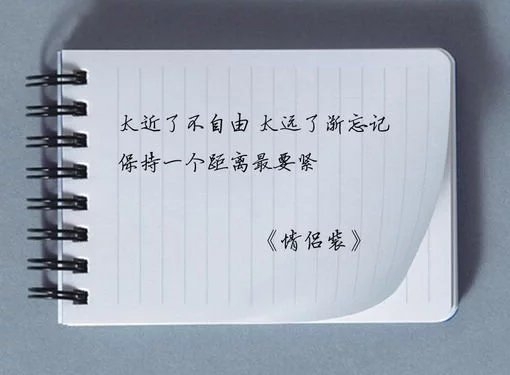 太近了不自由 太远了渐忘记
保持一个距离最要紧
《情侣装》